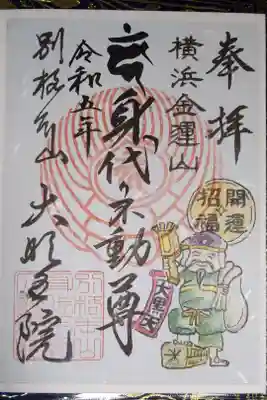 奉拝
横浜
身代り不動尊
令和五年
別格本山 大明王院
開運
招福
大黒天